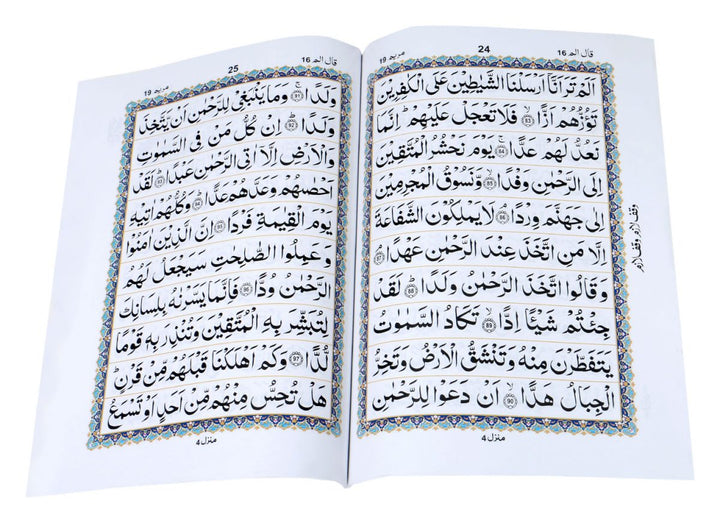 قال الم ١٦
24
مريم ١٩
اَلَمْ تَرَ اَنَّاۤ اَرْسَلْنَا الشَّیٰطِیْنَ عَلَی الْكٰفِرِیْنَ
تَؤُزُّهُمْ اَزًّا ۙ 83 فَلَا تَعْجَلْ عَلَیْهِمْ ؕ اِنَّمَا
نَعُدُّ لَهُمْ عَدًّا ۚ 84 یَوْمَ نَحْشُرُ الْمُتَّقِیْنَ
اِلَی الرَّحْمٰنِ وَفْدًا ۙ 85 وَّنَسُوْقُ الْمُجْرِمِیْنَ
اِلٰی جَهَنَّمَ وِرْدًا ۘ 86 لَا یَمْلِكُوْنَ الشَّفَاعَةَ
اِلَّا مَنِ اتَّخَذَ عِنْدَ الرَّحْمٰنِ عَهْدًا ۘ 87
وَقَالُوا اتَّخَذَ الرَّحْمٰنُ وَلَدًا ؕ 88 لَقَدْ
جِئْتُمْ شَیْـًٔا اِدًّا ۙ 89 تَكَادُ السَّمٰوٰتُ
یَتَفَطَّرْنَ مِنْهُ وَتَنْشَقُّ الْاَرْضُ وَتَخِرُّ
الْجِبَالُ هَدًّا ۙ 90 اَنْ دَعَوْا لِلرَّحْمٰنِ
وقف لازم وقف لازم
منزل ٤
قال الم ١٦
25
مريم ١٩
وَلَدًا ۚ 91 وَمَا یَنْۢبَغِیْ لِلرَّحْمٰنِ اَنْ یَّتَّخِذَ
وَلَدًا ؕ 92 اِنْ كُلُّ مَنْ فِی السَّمٰوٰتِ
وَالْاَرْضِ اِلَّاۤ اٰتِی الرَّحْمٰنِ عَبْدًا ؕ 93 لَقَدْ
اَحْصٰىهُمْ وَعَدَّهُمْ عَدًّا ؕ 94 وَكُلُّهُمْ اٰتِیْهِ
یَوْمَ الْقِیٰمَةِ فَرْدًا 95 اِنَّ الَّذِیْنَ اٰمَنُوْا
وَعَمِلُوا الصّٰلِحٰتِ سَیَجْعَلُ لَهُمُ
الرَّحْمٰنُ وُدًّا 96 فَاِنَّمَا یَسَّرْنٰهُ بِلِسَانِكَ
لِتُبَشِّرَ بِهِ الْمُتَّقِیْنَ وَتُنْذِرَ بِهٖ قَوْمًا
لُّدًّا 97 وَكَمْ اَهْلَكْنَا قَبْلَهُمْ مِّنْ قَرْنٍ ؕ
هَلْ تُحِسُّ مِنْهُمْ مِّنْ اَحَدٍ اَوْ تَسْمَعُ
منزل ٤